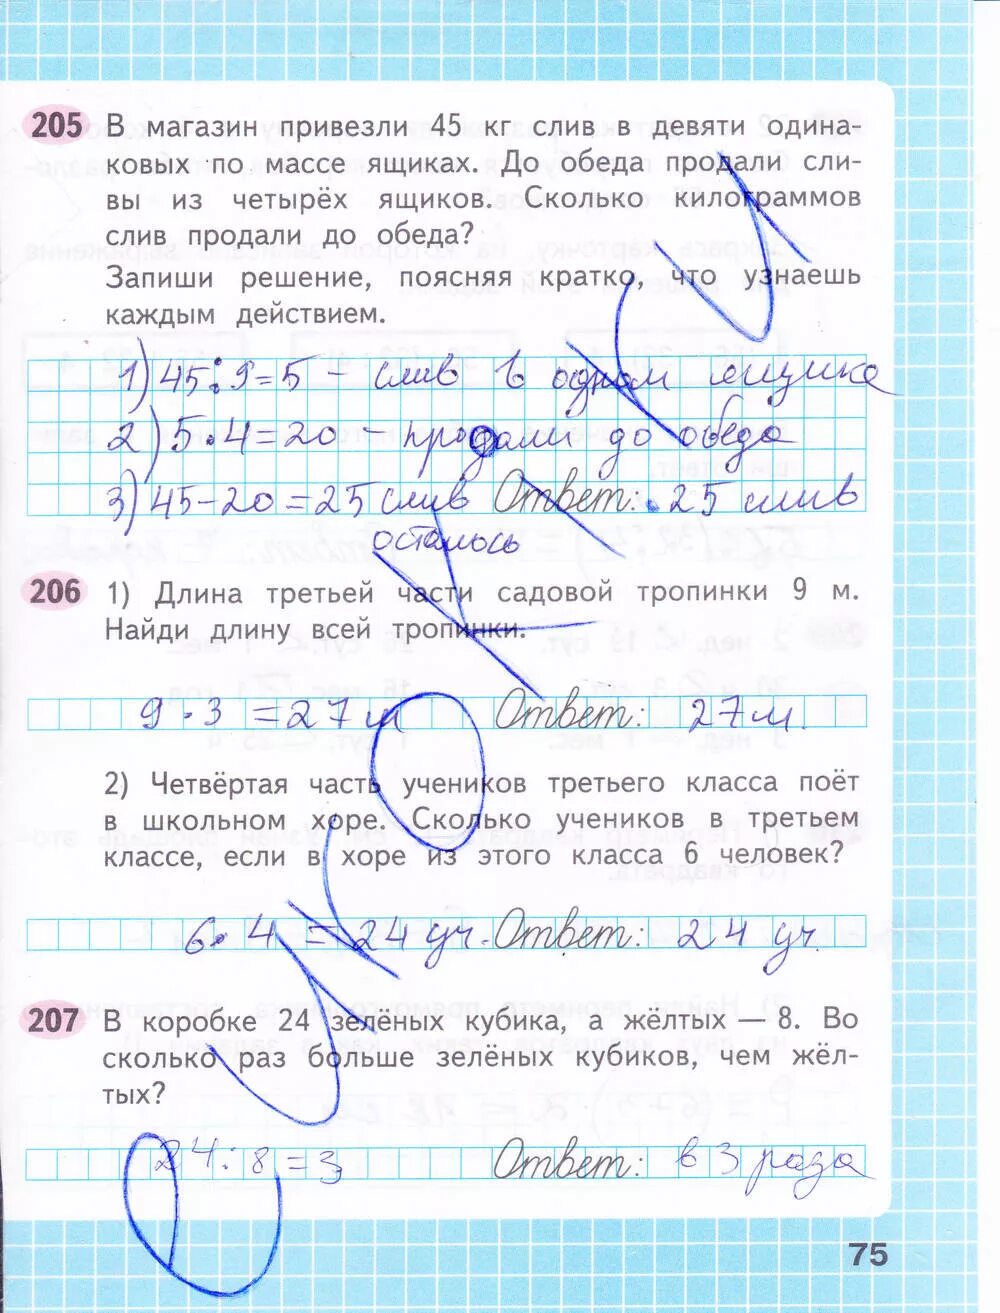 205 В магазин привезли 45 кг слив в девяти одина-
ковых по массе ящиках. До обеда продали сли-
вы из четырёх ящиков. Сколько килограммов
слив продали до обеда?
Запиши решение, поясняя кратко, что узнаешь
каждым действием.
1) 45 : 9 = 5 – слив в одном ящике
2) 5 · 4 = 20 – продали до обеда
3) 45 - 20 = 25 слив Ответ: 25 слив
осталось
206 1) Длина третьей части садовой тропинки 9 м.
Найди длину всей тропинки.
9 · 3 = 27 м Ответ: 27 м
2) Четвёртая часть учеников третьего класса поёт
в школьном хоре. Сколько учеников в третьем
классе, если в хоре из этого класса 6 человек?
6 · 4 = 24 уч. Ответ: 24 уч.
207 В коробке 24 зелёных кубика, а жёлтых — 8. Во
сколько раз больше зелёных кубиков, чем жёл-
тых?
24 : 8 = 3 Ответ: в 3 раза
75